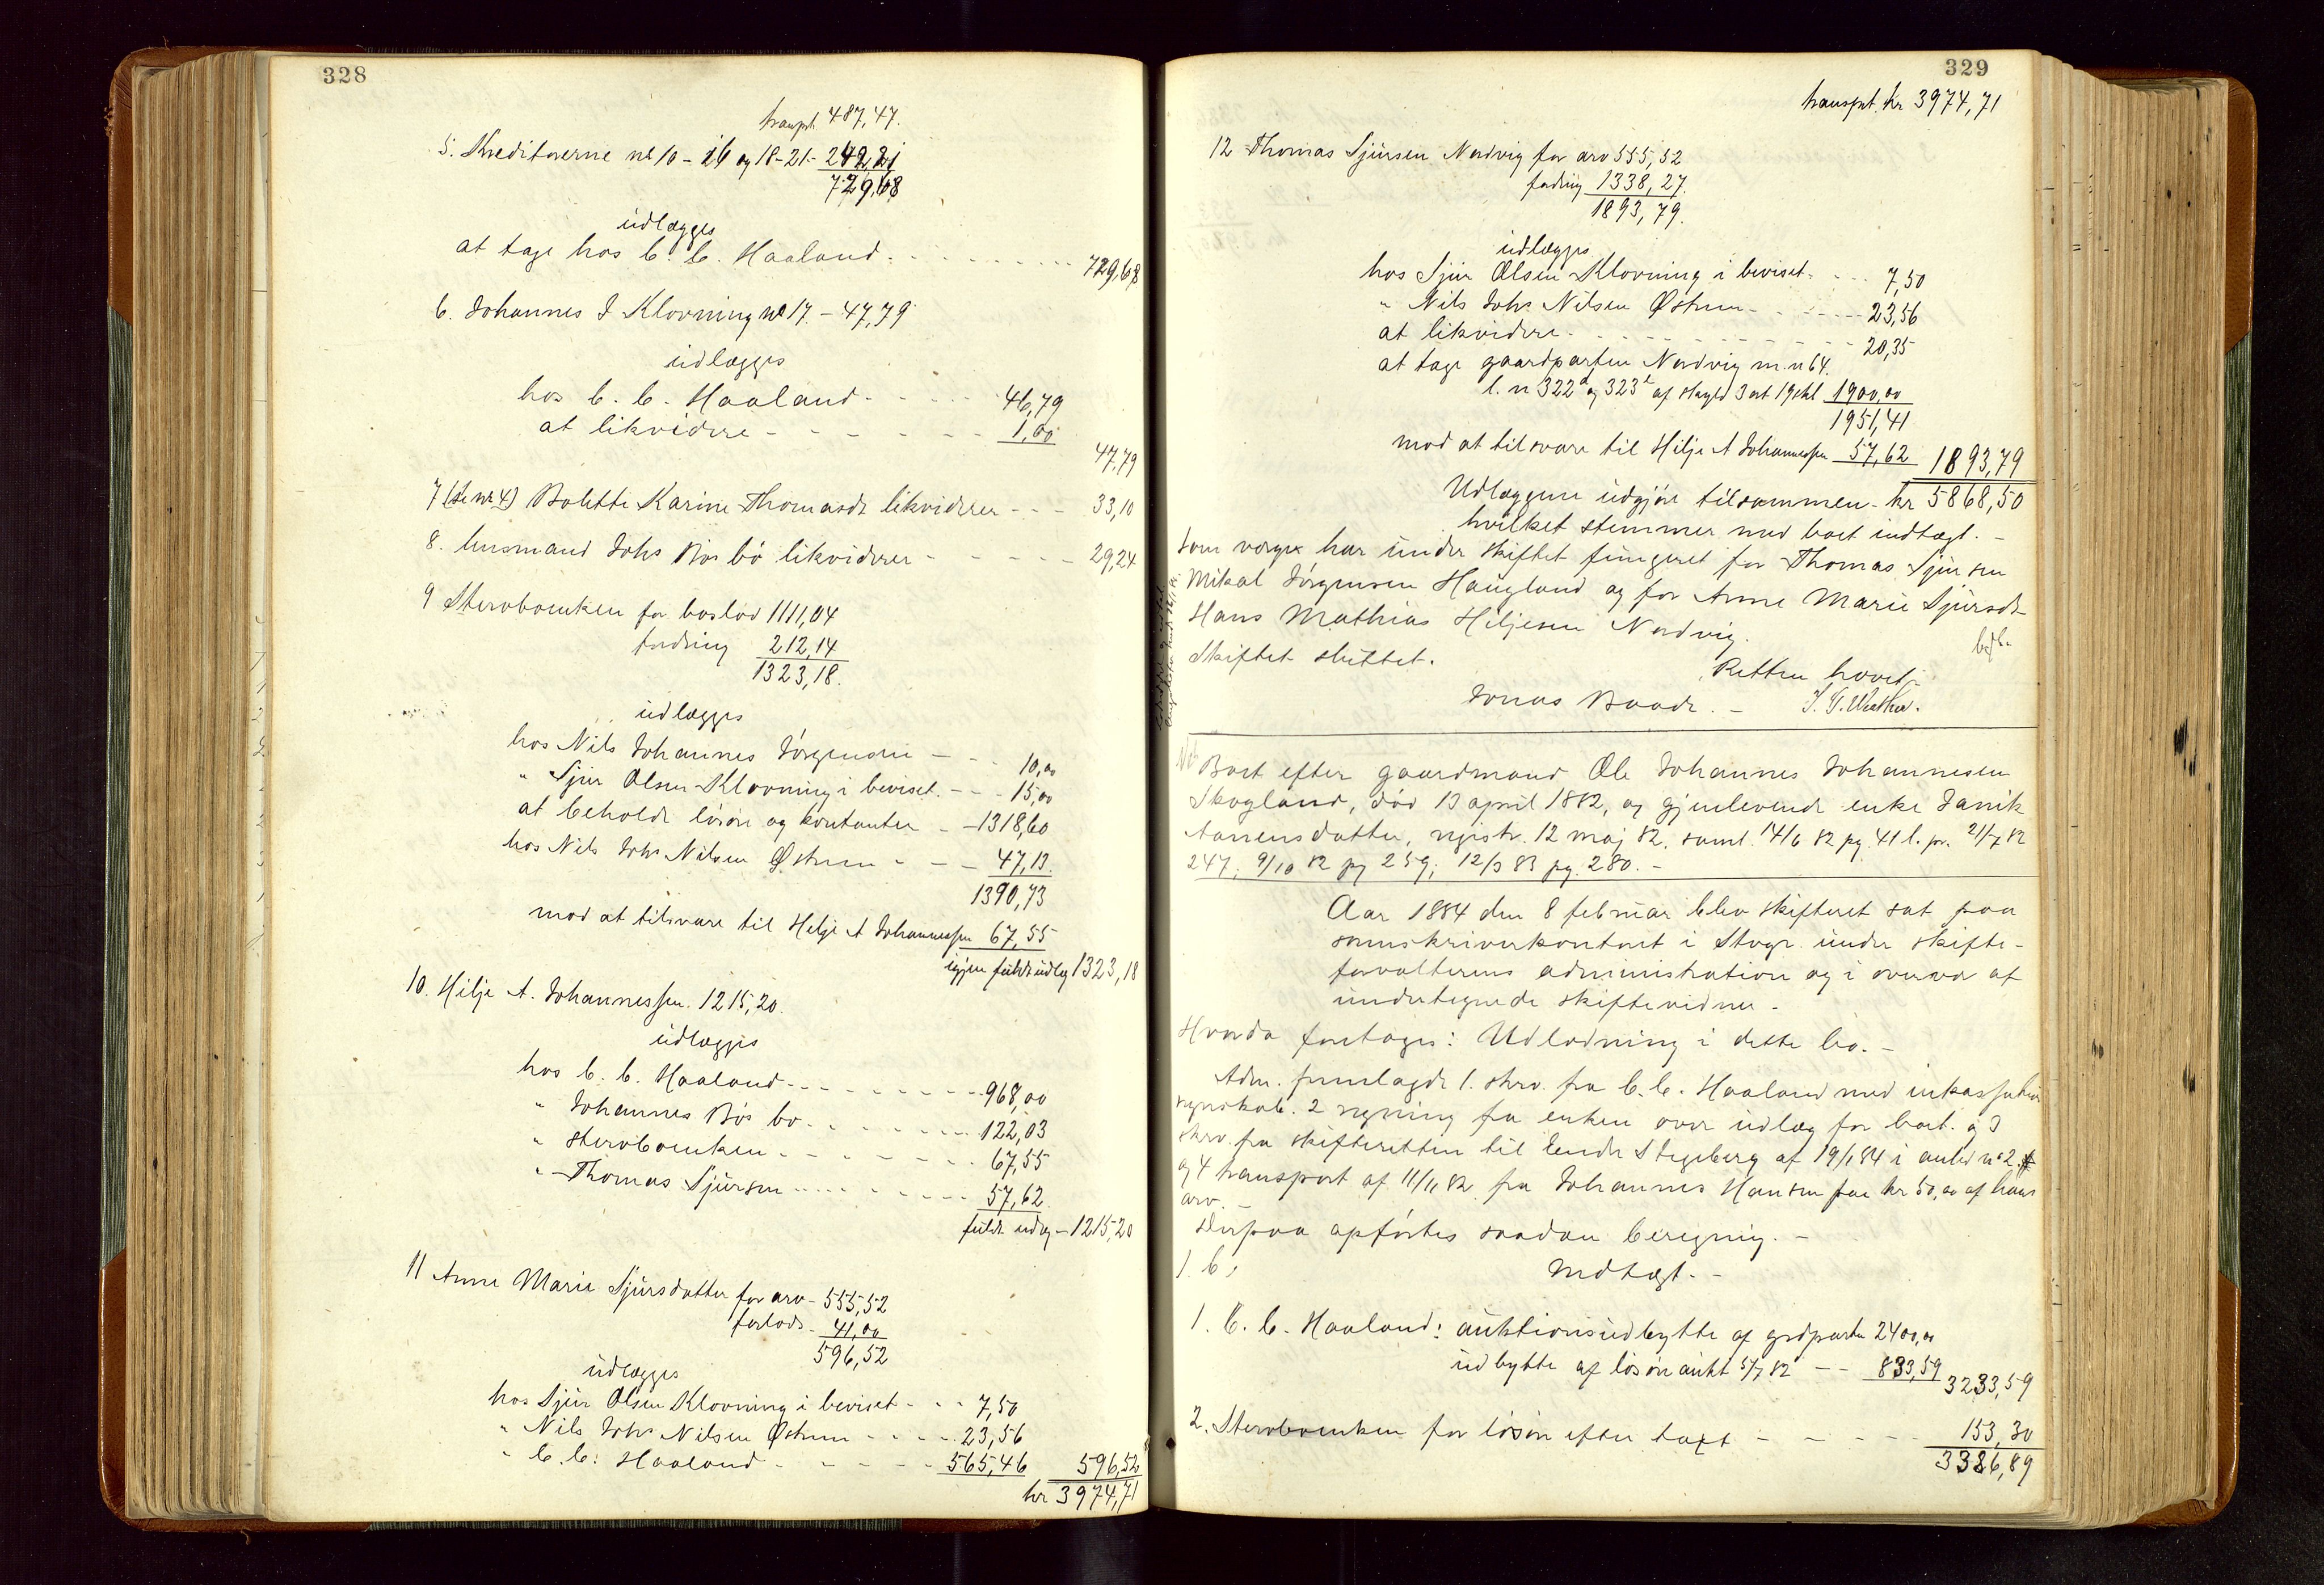 328
transpt. 487,47.
5. Kreditorerne no 10 - 16 og 18-21 - 242,21
729,68
udlægges
at tage hos C. C. Haaland. 729,68
6. Johannes J Klovning no 17. - 47,79
udlægges
hos C. C. Haaland 46,79
at likvidere 1,00
47,79
7 (se nr 4) Bolette Karine Thomasdr likviderer 33,10
8. husmand Johs Bös bö likviderer 29,24
9 Stervboenken for boslod 1111,04
fordring 212,14
1323,18.
udlægges
hos Nils Johannes Jörgensen 10,00
" Sjur Olsen Klovning i beviset. 15,00
at beholde lösöre og kontanter 1318,60
hos Nils Johs Nilsen Østrem 47,13.
1390,73
mod at tilsvare til Helje A Johannessen 67,55
igjen fuldt udlæg 1323,18
10. Hilje A. Johannessen. 1215,20.
udlægges
hos C. C. Haaland 968,00
" Johannes Bös bo. 122,03
" stervboenken 67,55
" Thomas Sjursen 57,62.
fuldt udlæg - 1215,20
11 Anne Marie Sjursdatter for arv - 555,52
forlods - 41,00
596,52
udlægges
hos Sjur Olsen Klovning i beviset 7,50
" Nils Johs Nilsen Østrem 23,56
" C. C. Haaland 565,46 596,52
kr 3974,71
329
transpt. kr 3974,71
12 Thomas Sjursen Nordvig for arv 555,52
fordring 1338,27.
1893,79.
udlægges
hos Sjur Olsen Klovning i beviset. 7,50
" Nils Johs Nilsen Østrem 23,56
at likvidere 20,35
at tage gaardparten Nordvig m. n 64.
l. n 322 og 323 af skyld 3 ort 19 skl 1900,00
1951,41
mod at tilsvare til Hilje A Johannessen 57,62 1893,79
Udlæggene udgjöre tilsammen - kr 5868,50
hvilket stemmer med boets indtægt. -
Som værge har under skiftet fungeret for Thomas Sjursen
Mikal Jörgensen Haugland og for Anne Marie Sjursdr
Hans Mathias Hiljesen Nordvig.
Skiftet sluttet.
Retten hævet.
Jonas Baade. -
Boet efter gaardmand Ole Johannes Johannesen
Skogland, död 13 april 1882, og gjenlevende enke Janik
Aanensdatter, registr. 12 maj 82, saml. 14/6 82 pg. 41 l. pr. 21/7 82
247; 9/10 82 pg 259; 12/3 83 pg. 280. -
Aar 1884 den 8 februar blev skifteret sat paa
sorenskriverkontoret i Stvgr. under skifte-
forvalterens administration og i overvær af
undertegnede skiftevidner -
Hvorda foretoges: Udlodning i dette bo. -
Adm. fremlagde 1. skrv. fra C. C. Haaland med inkassations
regnskab. 2 regning fra enken over udlæg for boet. og 3
skrv. fra skifteretten til lensm Stegeberg af 19/1 84 i anled no 2.
og 4 transport af 11/11 82 fra Johannes Hansen paa kr 50,00 af hans
arv. -
Derpaa opförtes saadan beregning. -
Indtægt. -
1. C. C. Haaland: auktionsudbytte af grdparten 2400,00
udbytte af lösöreaukt 5/7 82 833,59
3233,59
2. Stervboenken for lösöre efter taxt 153,30
3386,89